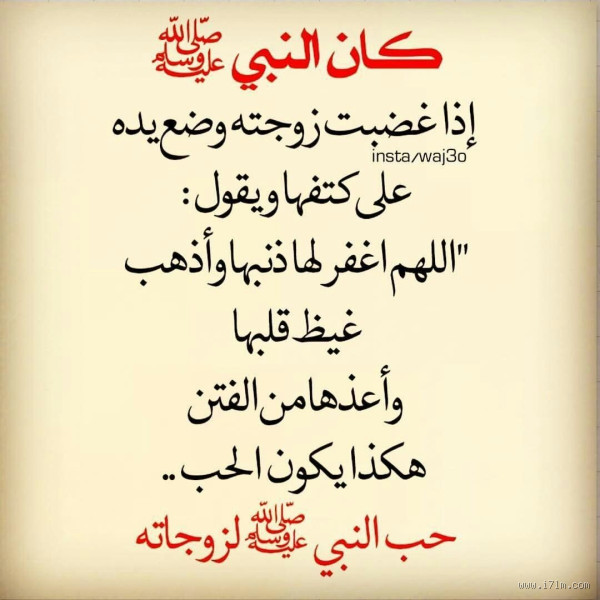 كان النبي ﷺ
إذا غضبت زوجته وضع يده
insta/waj3o
على كتفها ويقول :
"اللهم اغفر لها ذنبها وأذهب
غيظ قلبها
وأعذها من الفتن
هكذا يكون الحب ..
حب النبي ﷺ لزوجاته
www.i7lm.com